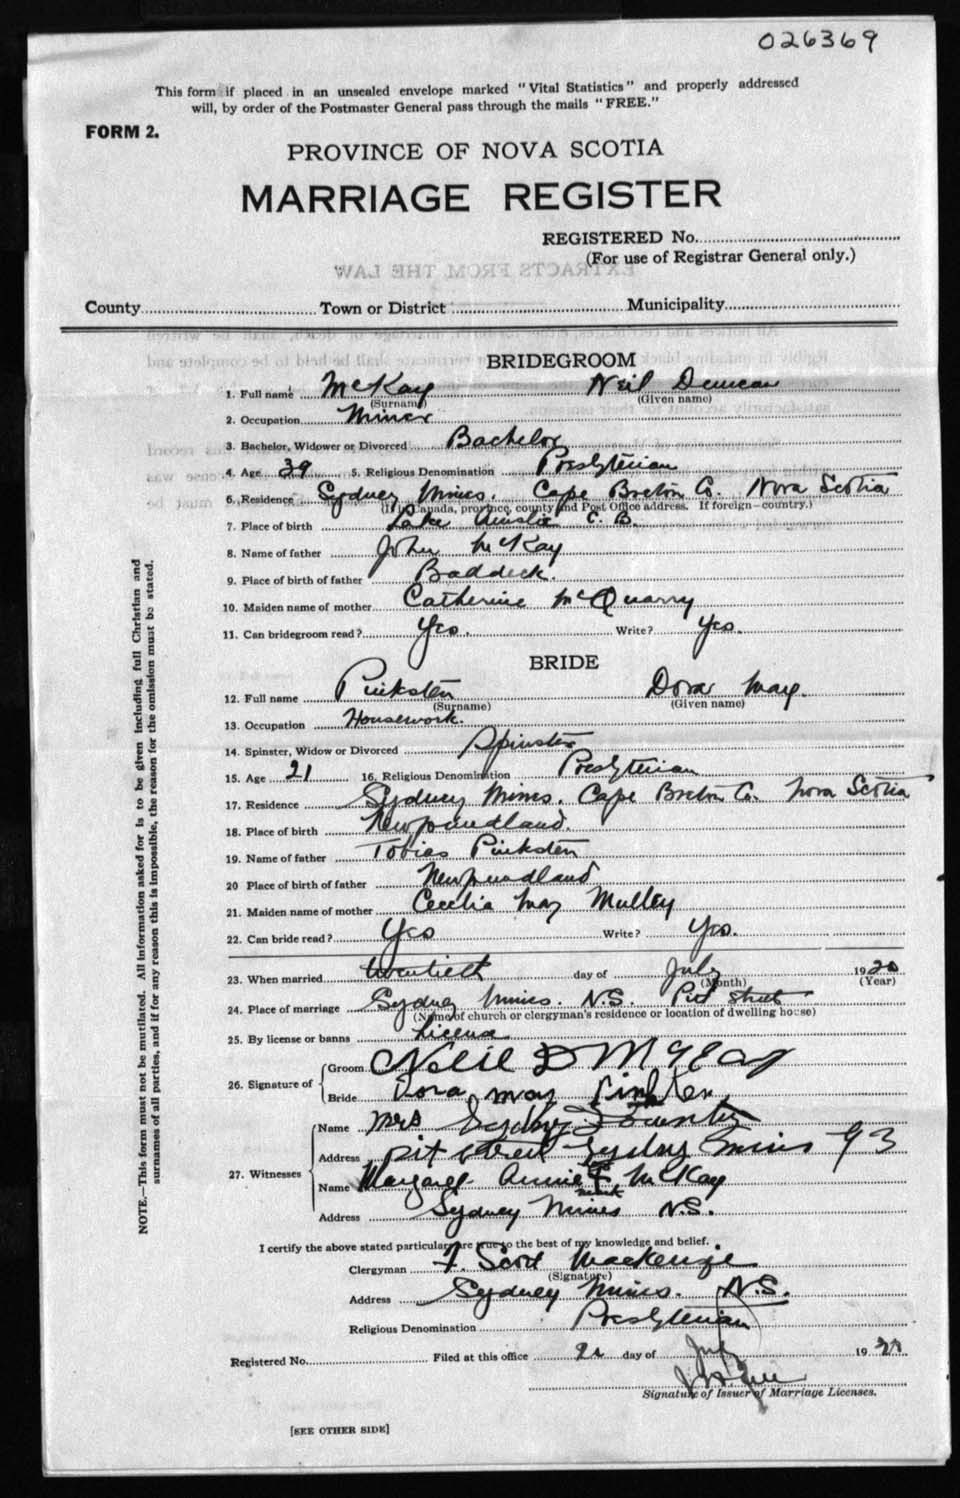 026369
This form if placed in an unsealed envelope marked "Vital Statistics" and properly addressed
will, by order of the Postmaster General pass through the mails "FREE."
FORM 2.
PROVINCE OF NOVA SCOTIA
MARRIAGE REGISTER
REGISTERED No.
(For use of Registrar General only.)
EXTRACTS FROM THE LAW
County Town or District Municipality
BRIDEGROOM
1. Full name McKay Neil Duncan
(Surname) (Given name)
2. Occupation Miner
3. Bachelor, Widower or Divorced Bachelor
4. Age 39 5. Religious Denomination Presbyterian
6. Residence Sydney Mines. Cape Breton Co. Nova Scotia
(If in Canada, province, county and Post Office address. If foreign—country.)
7. Place of birth Lake Ainslie C. B.
8. Name of father John McKay
9. Place of birth of father Baddeck.
10. Maiden name of mother Catherine McQuarry
11. Can bridegroom read? Yes. Write? Yes.
BRIDE
12. Full name Pinksten Dora May.
(Surname) (Given name)
13. Occupation Housework.
14. Spinster, Widow or Divorced Spinster
15. Age 21 16. Religious Denomination Presbyterian
17. Residence Sydney Mines. Cape Breton Co. Nova Scotia
18. Place of birth Newfoundland.
19. Name of father Tobias Pinksten
20 Place of birth of father Newfoundland
21. Maiden name of mother Cecelia May Mulley
22. Can bride read? Yes Write? Yes.
23. When married twentieth day of July 1920
(Month) (Year)
24. Place of marriage Sydney Mines. N.S. Pit Street
(Name of church or clergyman's residence or location of dwelling house)
25. By license or banns License
26. Signature of Groom Neil D McKay
Bride Dora may
27. Witnesses Name Mrs Sydney
Address pit street Sydney mines 93
Name Margaret Annie McKay
mark
Address Sydney Mines N.S.
I certify the above stated particulars are true to the best of my knowledge and belief.
Clergyman F. Scott MacKenzie
(Signature)
Address Sydney Mines. N.S.
Religious Denomination Presbyterian
Registered No. Filed at this office day of July 19
Signature of Issuer of Marriage Licenses.
[SEE OTHER SIDE]
NOTE.—This form must not be mutilated. All information asked for is to be given including full Christian and
surnames of all parties, and if for any reason this is impossible, the reason for the omission must be stated.